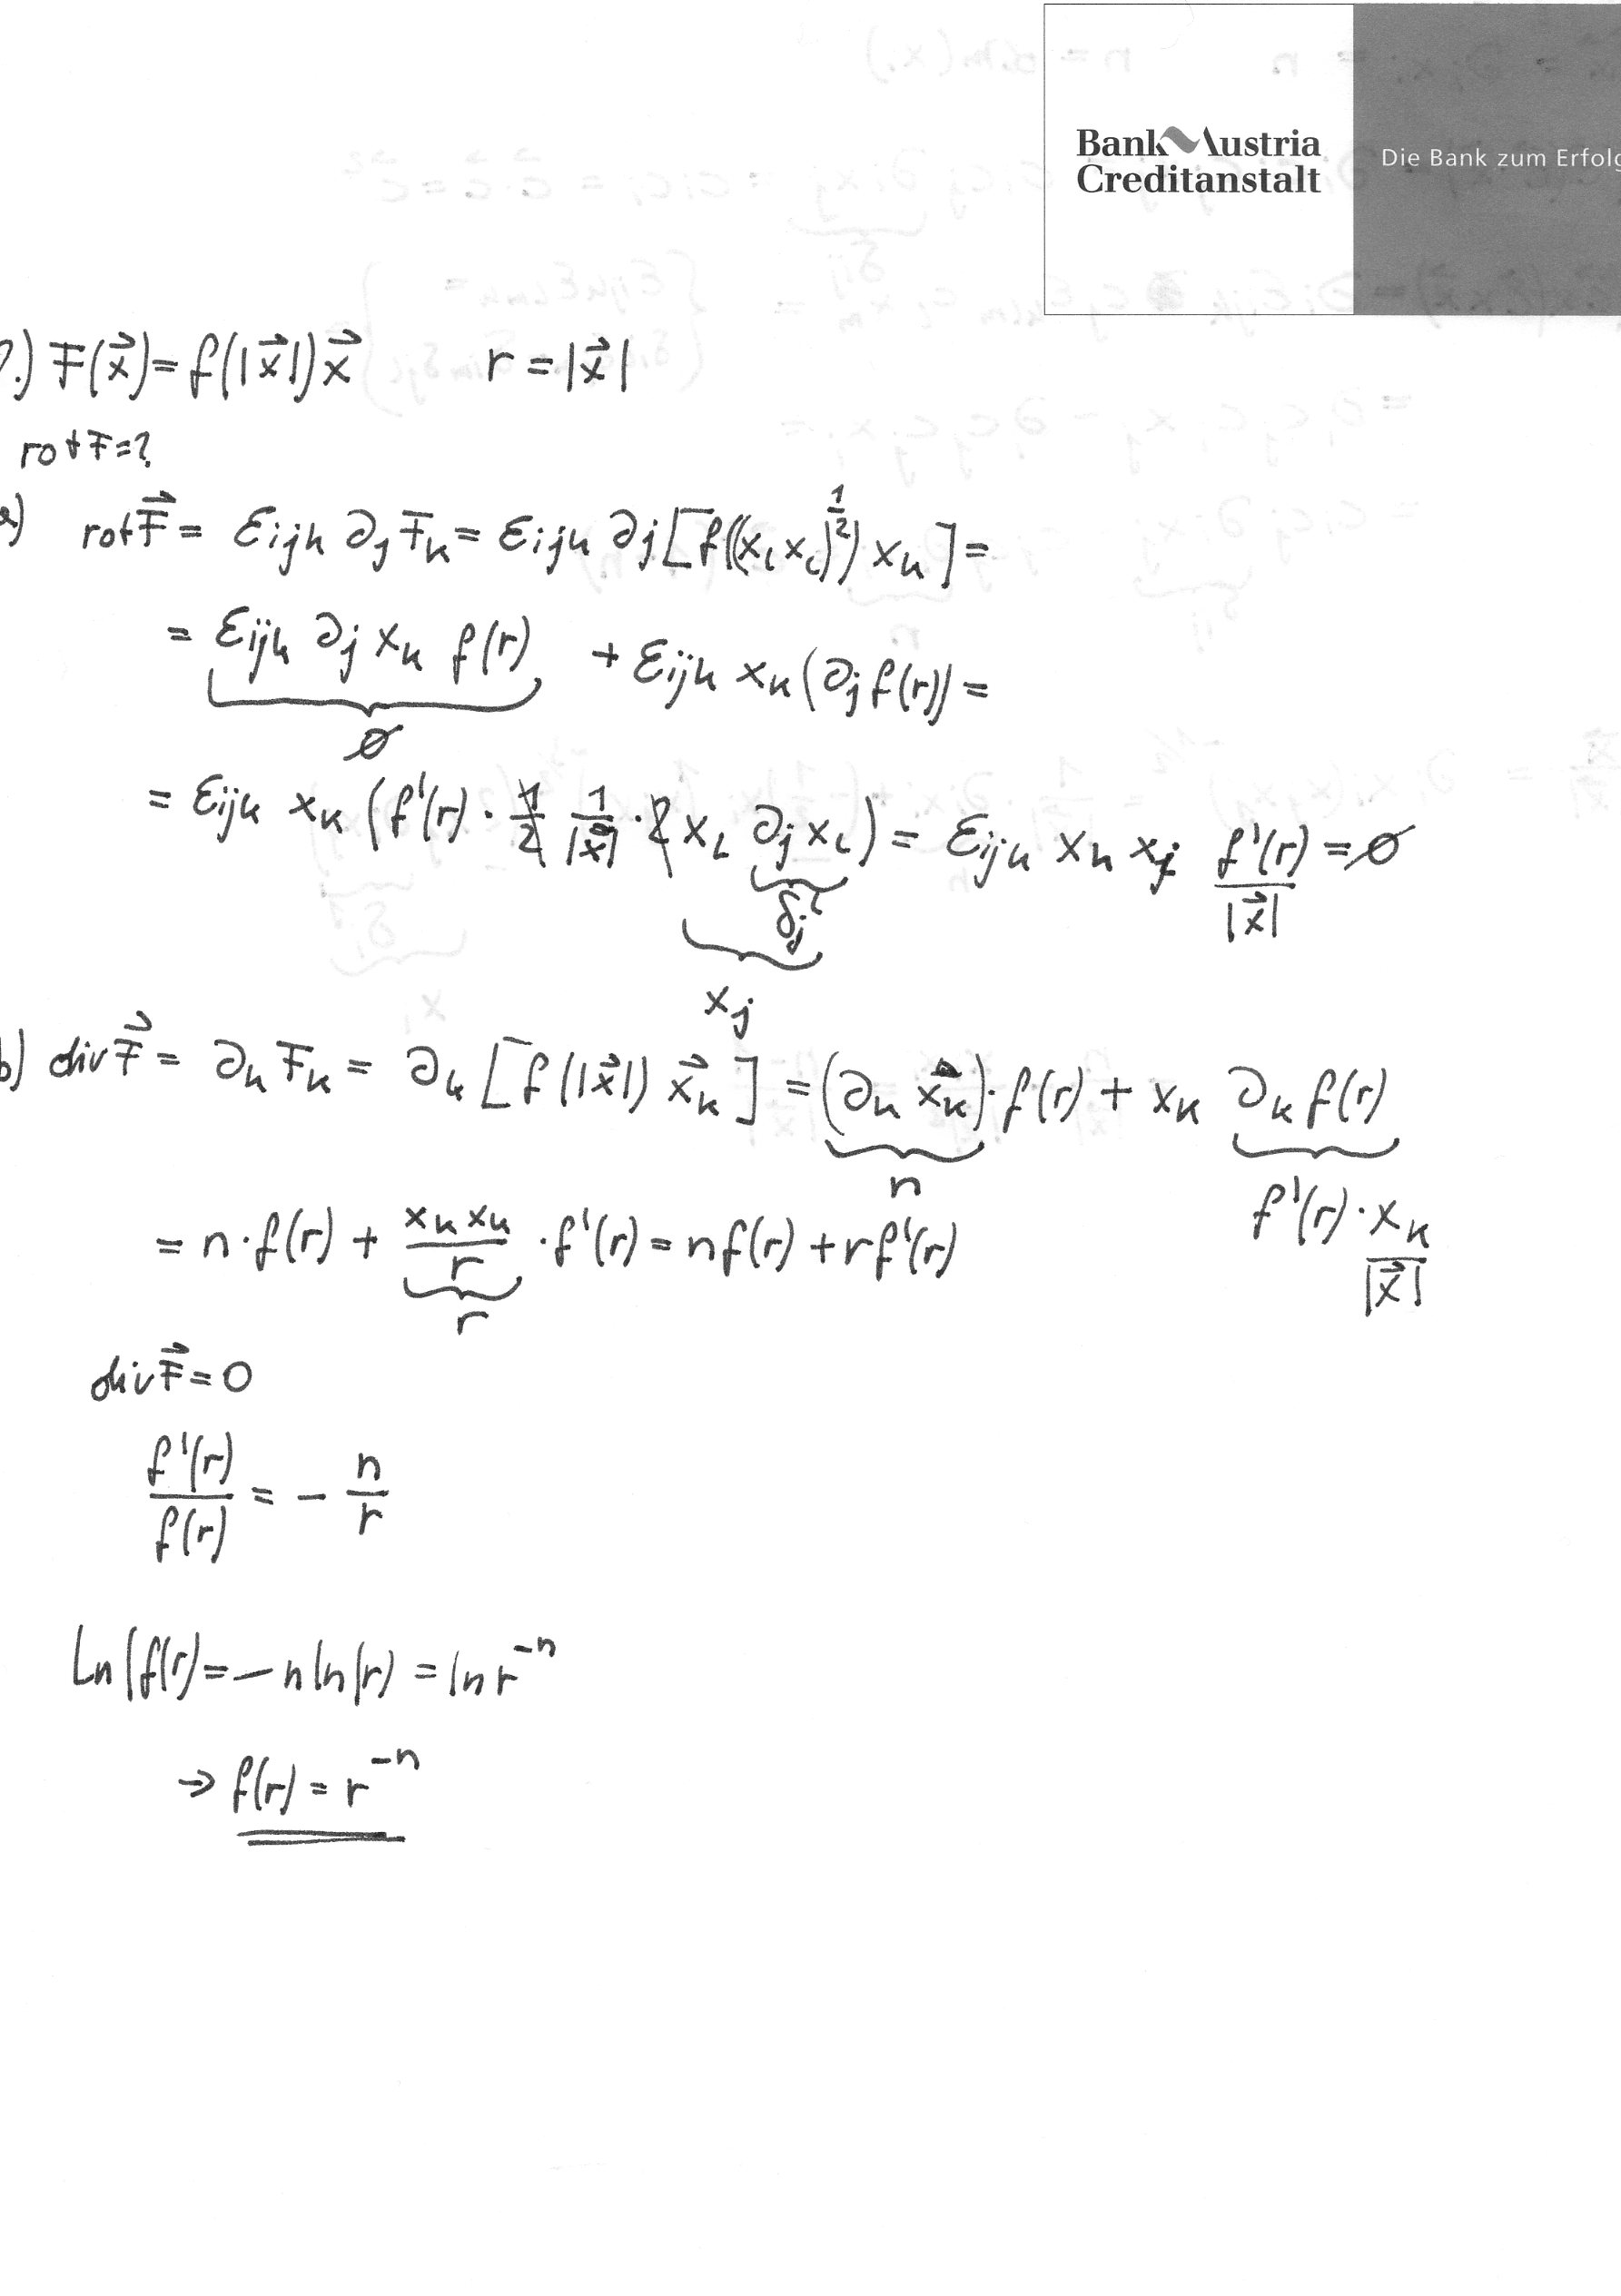 Bank Austria
Creditanstalt
Die Bank zum Erfolg
.) F(x⃗) = f(|x⃗|) x⃗ r = |x⃗|
rot F = ?
a) rot F⃗ = εijk ∂j Fk = εijk ∂j [f((xl xl)^1/2) xk] =
= εijk ∂j xk f(r) + εijk xk (∂j f(r)) =
∅
= εijk xk (f'(r) · 1/2 1/|x⃗| · 2 xl ∂j xl) = εijk xk xj f'(r)/|x⃗| = ∅
δjl
xj
b) div F⃗ = ∂k Fk = ∂k [f(|x⃗|) x⃗k] = (∂k xk) · f(r) + xk ∂k f(r)
n
f'(r) · xk/|x⃗|
= n · f(r) + xk xk/r · f'(r) = n f(r) + r f'(r)
r
div F⃗ = 0
f'(r)/f(r) = - n/r
Ln(f(r) = -n ln(r) = ln r^-n
→ f(r) = r^-n